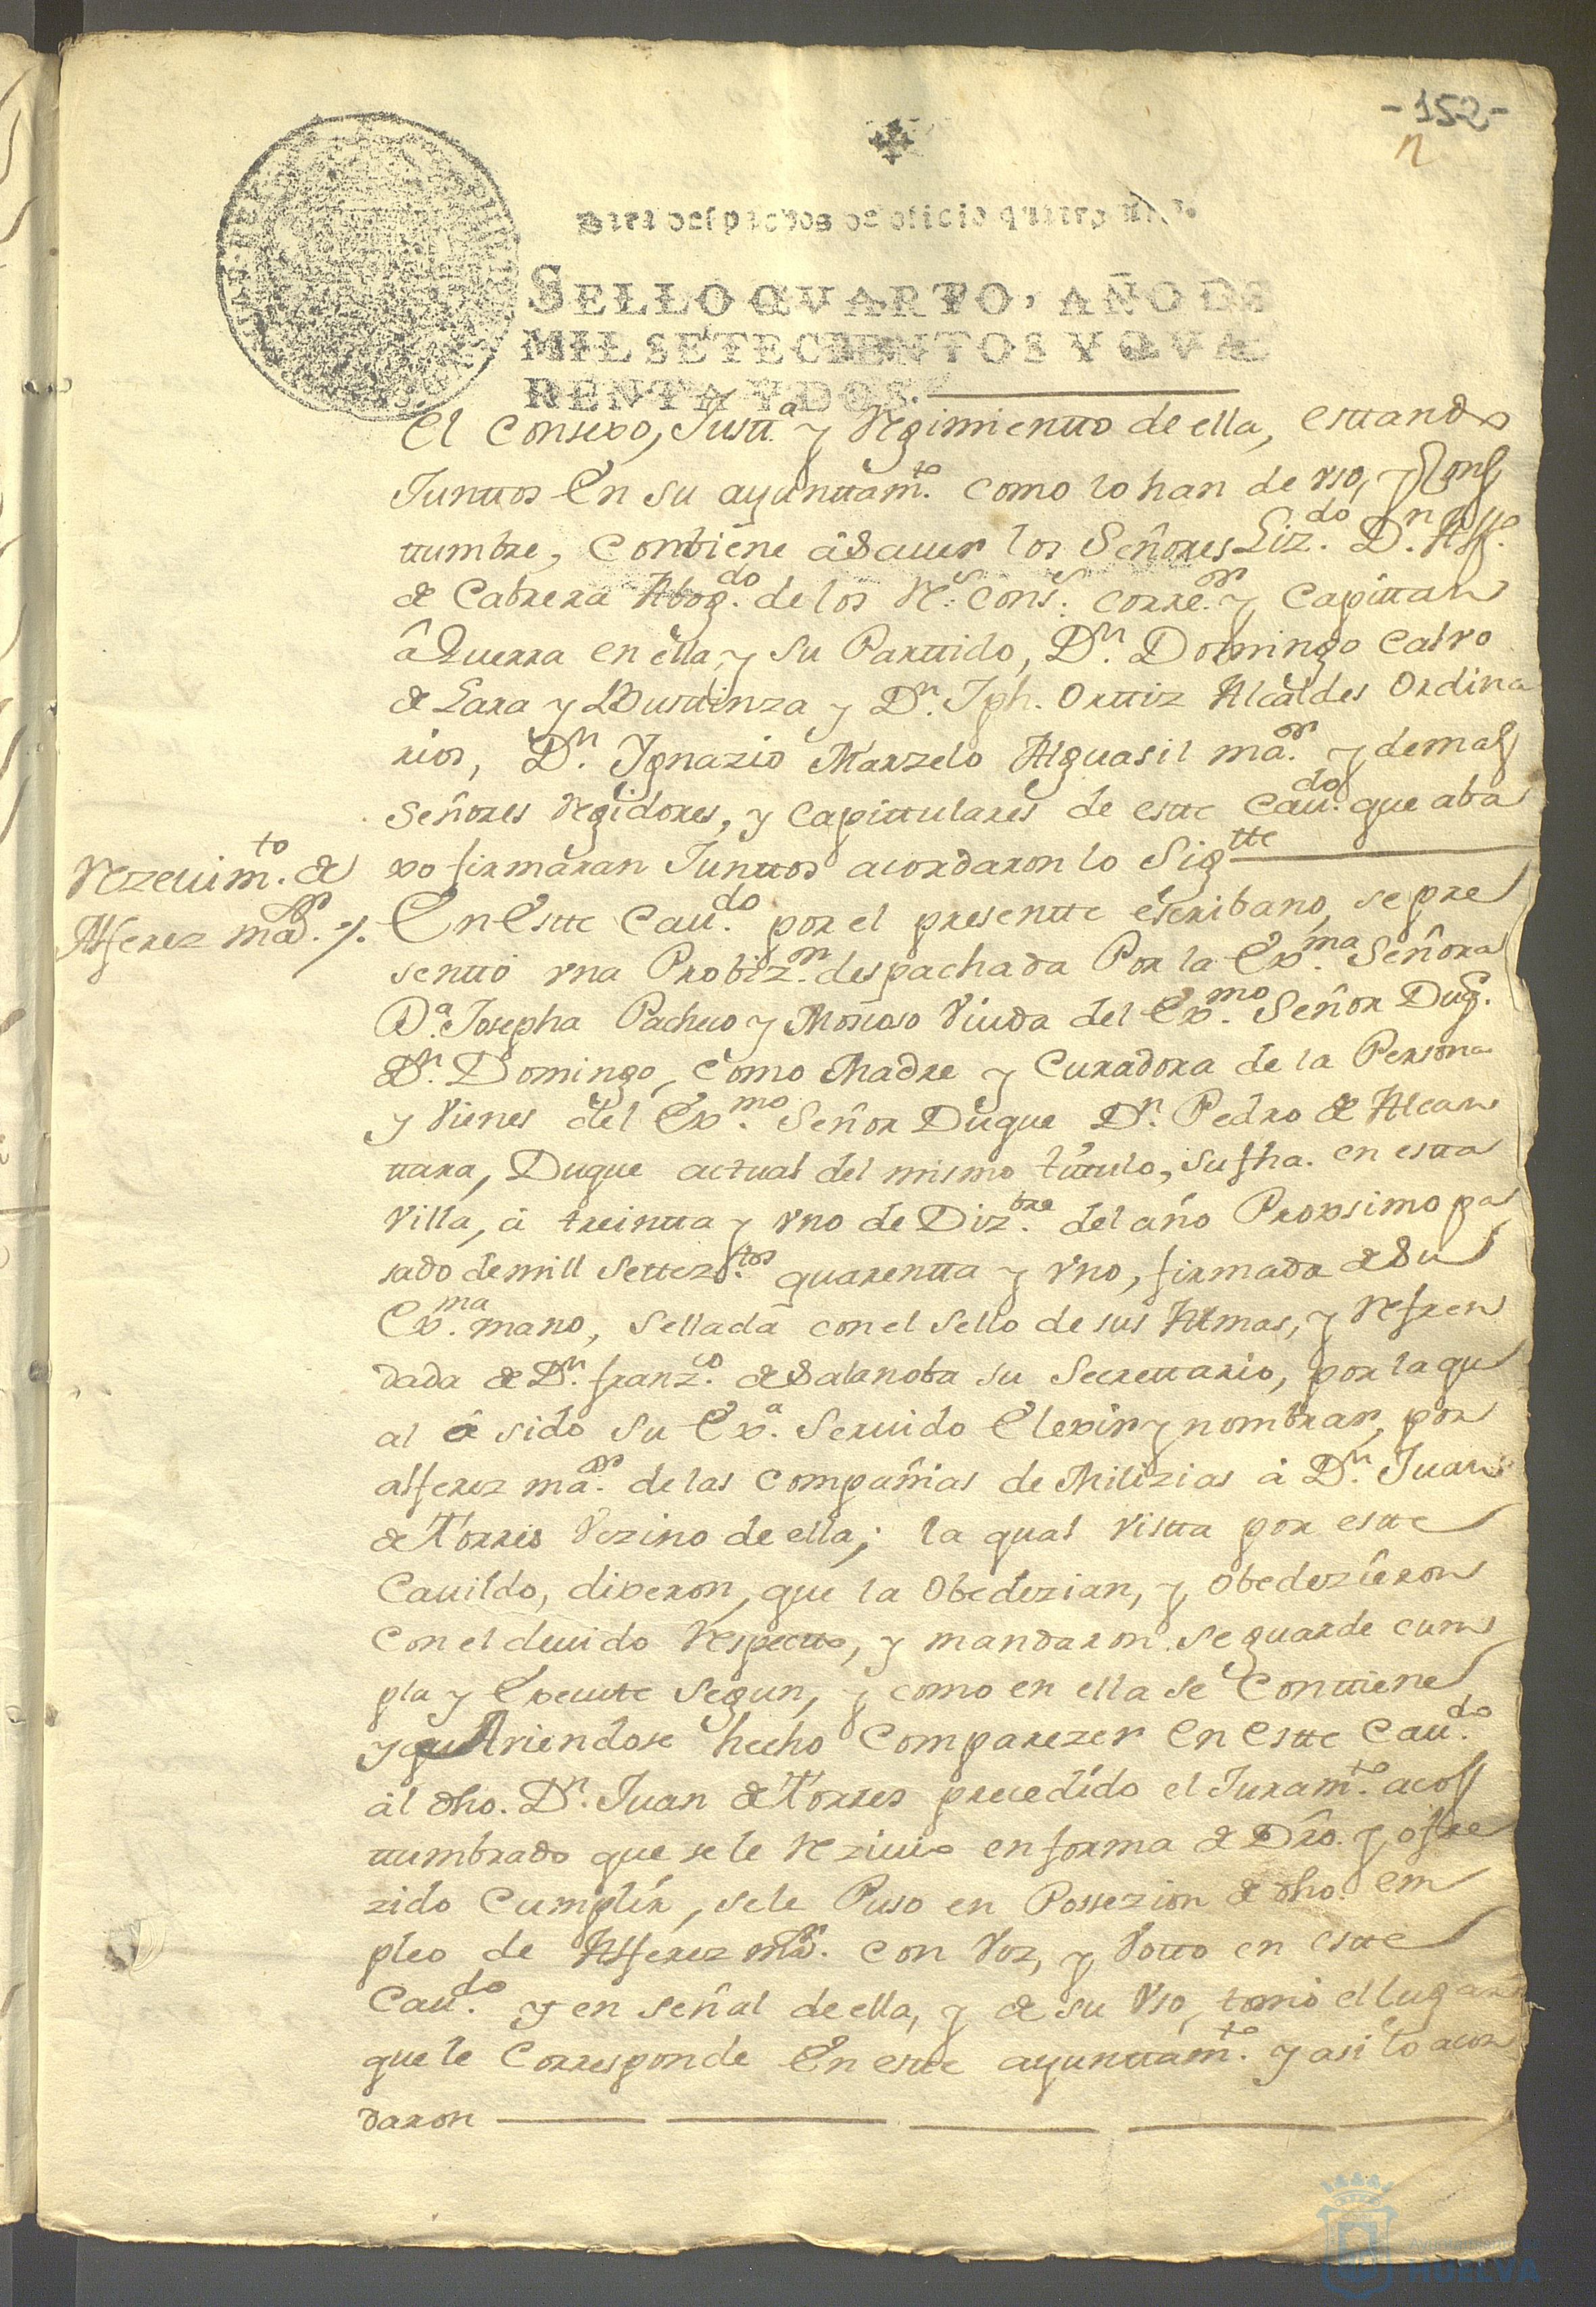 -152-
n
Para despachos de oficio quatro mrs.
SELLO QVARTO, AÑO DE
MIL SETECIENTOS Y QVA
RENTA Y DOS.
El Consexo, Justt.ª y Regimientto de ella, esttando
Junttos En su ayunttam.to como lo han de vso, y Cons
ttumbre, Combiene â Sauer los Señores Liz.do D.n Alf.o
de Cabrera Abog.do de los R.s Cons.s Corre.or y Capittan
â Guerra en ella, y su Parttido, D.n Domingo Calvo
de Lara y Busttinza y D.n Jph. Orttiz Alcaldes Ordina
rios, D.n Ygnazio Marzelo Alguasil ma.or y demas
Señores Regidores, y Capittulares de estte Cau.do que aba
xo firmaran Junttos acordaron lo Sig.tte
Rezeuim.to de
Alferez ma.or %.
En Estte Cau.do por el presentte escribano, se pre
senttó vna Probiz.on despachada Por la Ex.ma Señora
D.ª Josepha Pacheco y Moscoso Viuda del Ex.mo Señor Duq.e
D.n Domingo, como Madre y Curadora de la Persona
y Vienes del Ex.mo Señor Duque D.n Pedro de Alcan
ttara, Duque actual del mismo títtulo, su fha. en estta
Villa, â treintta y vno de Diz.bre del año Proxsimo pa
sado de mill Settez.tos quarentta y vno, firmada de Su
Ex.ma mano, Sellada con el Sello de sus Armas, y Refren
dada de D.n Franz.co de Salanoba su Secrettario, por la qu
al â sido Su Ex.ª Seruido Elexir y nombrar, por
alferez ma.or de las Compañias de Milizias â D.n Juan
de Torres Vezino de ella; la qual vistta por estte
Cauildo, dixeron, que la Obedezian, y obedezieron
Con el deuido Respectto, y mandaron se guarde cum
pla y Execute Segun, y como en ella se Conttiene
y queAuiendose hecho Comparezer En Estte Cau.do
al dho. D.n Juan de Torres precedido el Juram.to acos
ttumbrado que se le Reziuio en forma de Dro. y ofre
zido Cumplir, se le Puso en Possezion de dho. em
pleo de Alferez ma.or Con Voz, y Votto en estte
Cau.do y en señal de ella, y de su Vso, tomó el lugar
que le Corresponde En estte ayunttam.to y asi lo acor
daron
Ayuntamiento de
HUELVA